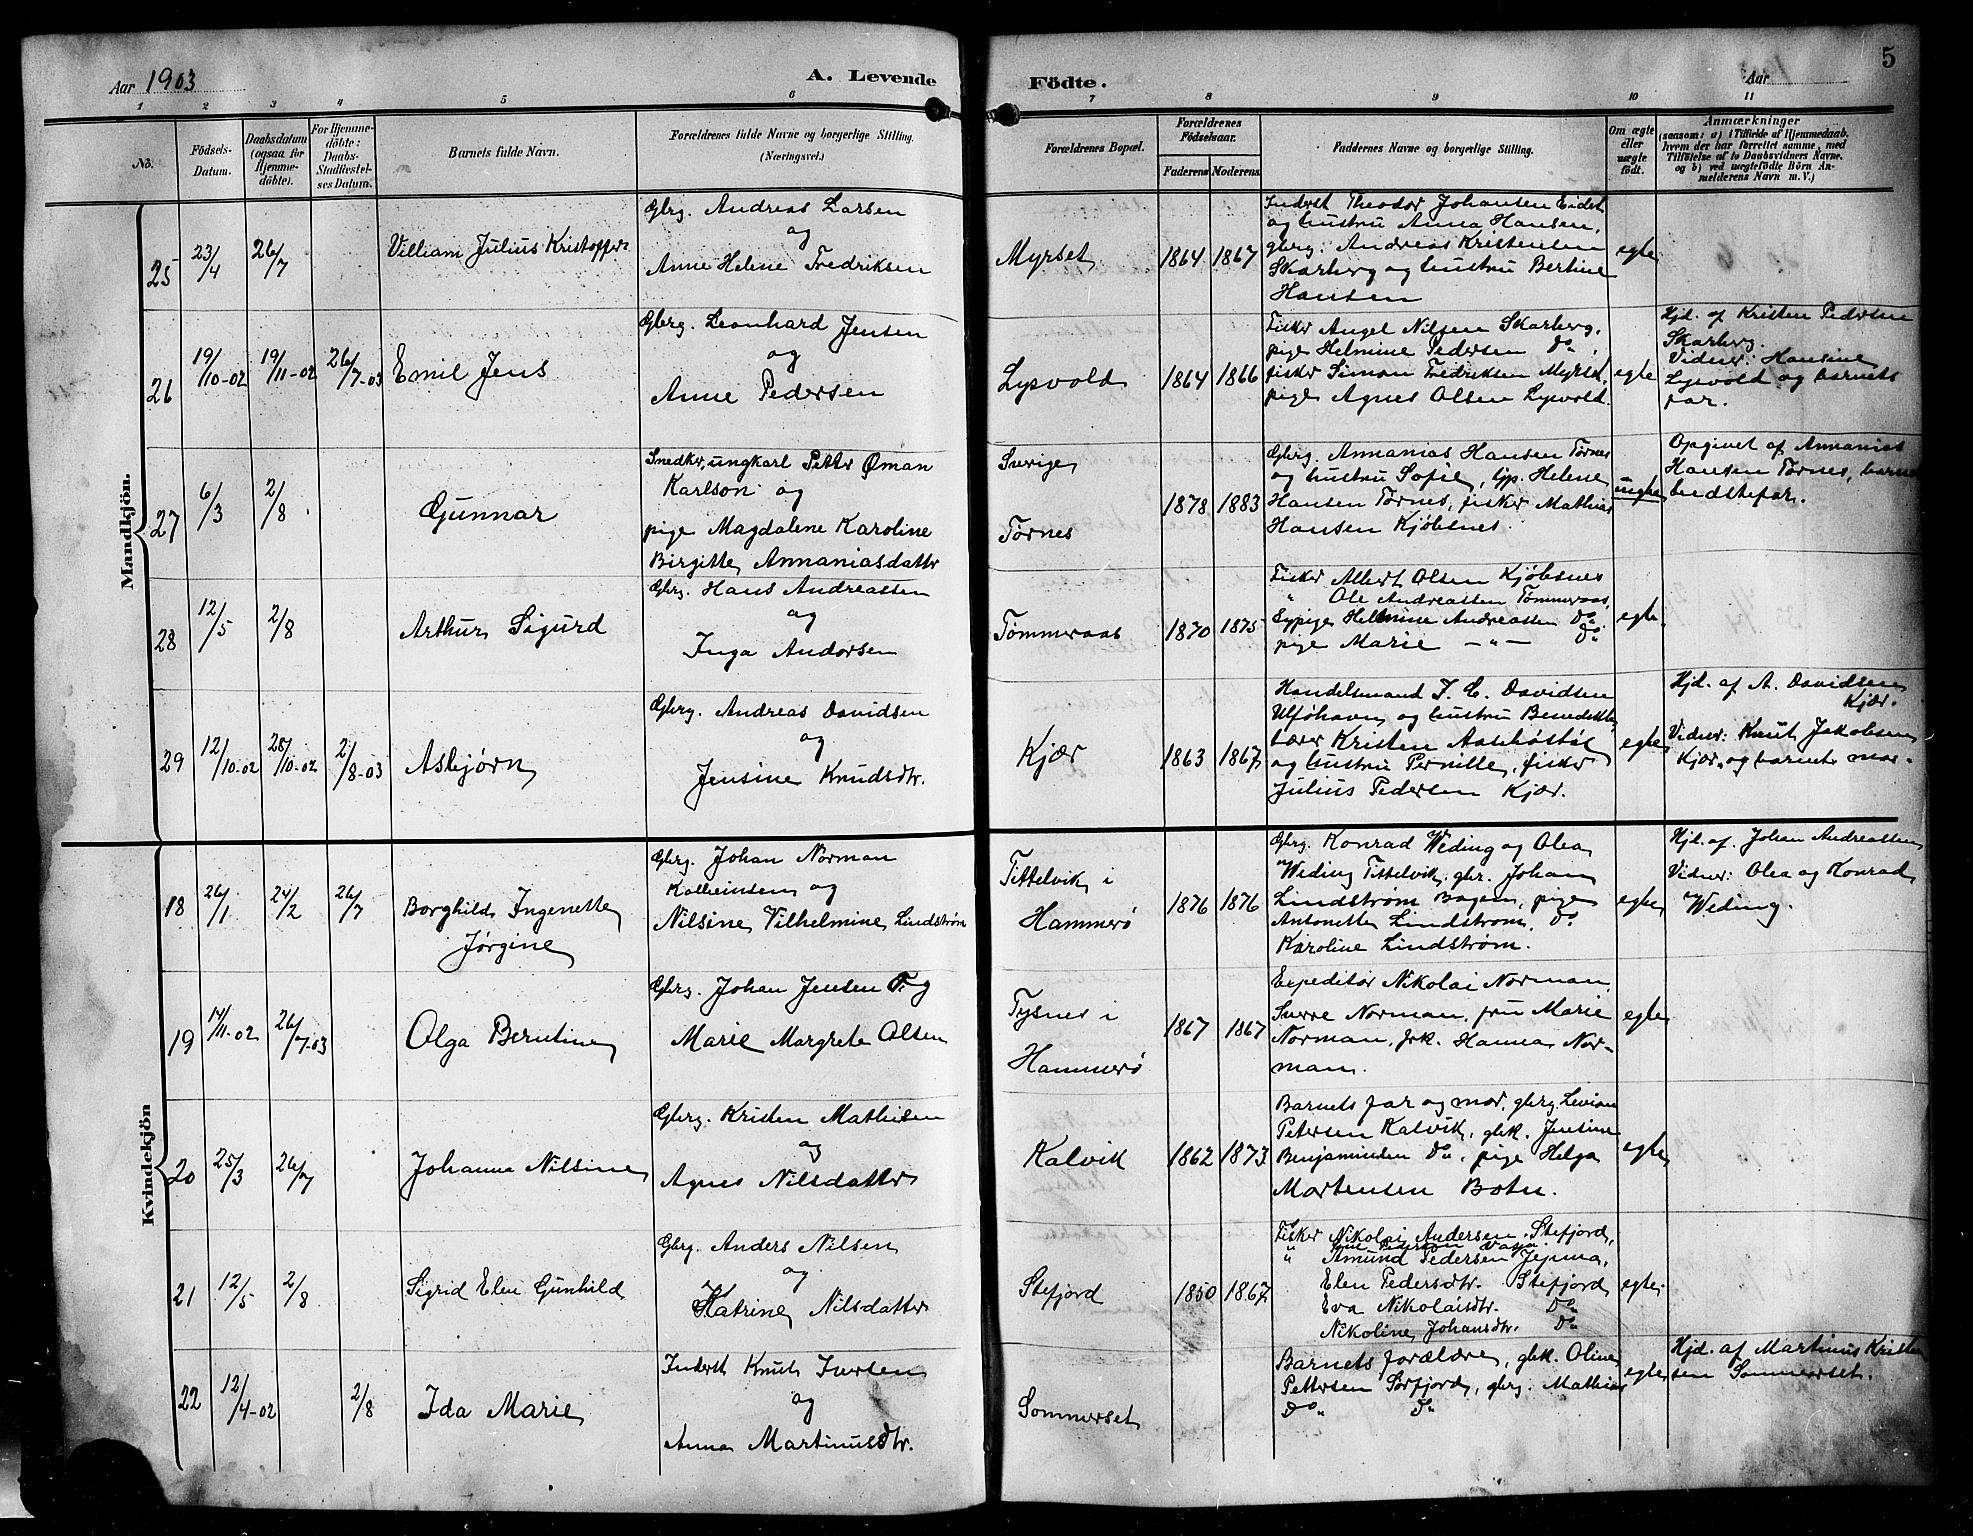 Aar 1903
A. Levende Födte.
Aar
5
1 2 3 4 5 6 7 8 9 10 11
No.
Födsels-Datum.
Daabsdatum (ogsaa for Hjemme-döbte).
For Hjemme-döbte: Daabs-Stadfæstel-ses Datum.
Barnets fulde Navn.
Forældrenes fulde Navne og borgerlige Stilling. (Næringsvei.)
Forældrenes Bopæl.
Forældrenes Födselsaar.
Faderens Moderens
Faddernes Navne og borgerlige Stilling.
Om ægte eller uægte födt.
Anmærkninger
(saasom: a) i Tilfælde af Hjemmedaab, hvem der har forrettet samme, med Tilföielse af to Daabsvidners Navne, og b) ved uægtefödte Börn An-melderens Navn m. V.)
Mandkjön.
25 23/4 26/7 Villiam Julius Kristoffer
Gbrg. Andreas Larsen
og
Anne Helene Fredriksen
Myrset 1864 1867
Inderst Theodor Johansen Eidet
og hustru Anna Hansen,
gbrg. Andreas Kristensen
Skarberg og hustru Bertine
Hansen
egte
26 19/10-02 19/11-02 26/7-03 Emil Jens
Gbrg. Leonhard Jensen
og
Anne Pedersen
Lysvold 1864 1866
Fisker Angel Nilsen Skarberg,
pige Helmine Pedersen Do,
fisker Simon Fredriksen Myrset,
pige Agnes Olsen Lysvold.
egte
Hjd. af Kristen Pedersen
Skarberg.
Vidner: Hansine
Lysvold og barnets
far.
27 6/3 2/8 Gunnar
Snedker, ungkarl Petter Øman
Karlson og
pige Magdalene Karoline
Birgitte Annaniasdatter
Sverige
Tørnes
1878 1883
Gbrg. Annanias Hansen Tørnes
og hustru Sofie, Helene
Hansen Tørnes, fisker Mathias
Hansen Kjøbsnes.
uegte
Opgivet af Annanias
Hansen Tørnes, barnets
bedstefar.
28 12/5 2/8 Arthur Sigurd
Gbrg. Hans Andreassen
og
Inga Andorsen
Tømmeraas 1870 1875
Fisker Albert Olsen Kjøbsnes
" Ole Andreassen Tømmeraas,
Sypige Helmine Andreassen Do
pige Marie — " — Do
egte.
29 12/10-02 28/10-02 2/8-03 Asbjørn
Gbrg. Andreas Davidsen
og
Jensine Knudsdtr.
Kjær 1863 1867
Handelsmand J. C. Davidsen
Ulføhavn og hustru Benedikte,
lærer Kristen
og hustru Pernille, fisker
Julius Pedersen Kjær.
egte
Hjd. af A. Davidsen
Kjær.
Vidner: Knut Jakobsen
Kjær og barnets mor.
Kvindekjön
18 26/1 24/2 26/7 Borghild Ingenette
Jørgine
Gbrg. Johan Norman
Kolbeinsen og
Nilsine Vilhelmine Lindstrøm
Tittelvik i
Hammerø
1876 1876
Gbrg. Konrad Weding og Olea
Weding Tittelvik, gbr. Johan
Lindstrøm Bogen, pige
Antonette Lindstrøm, Do
Karoline Lindstrøm.
egte
Hjd. af. Johan Andreassen
Vidner: Olea og Konrad
Weding.
19 17/11-02 26/7-03 Olga Berntine
Gbrg. Johan Jensen og
Marie Margrete Olsen
Tysnes i
Hammerø
1867 1867
Expeditør Nikolai Norman,
Sverre Norman, fru Marie
Norman, frk. Hanna Nor-
man.
egte
20 25/3 26/7 Johanna Nilsine
Gbrg. Kristen Mathisen
og
Agnes Nilsdatter
Kalvik 1862 1873
Barnets far og mor, gbrg. Levion
Petersen Kalvik, gbk. Jensine
Benjaminsen Do, pige Helga
Mortensen Botn.
egte
21 12/5 2/8 Sigrid Elen Gunhild
Gbrg. Anders Nilsen
og
Katrine Nilsdatter
Stefjord 1850 1867
Fisker Nikolai Andersen Stefjord,
" Amund Pedersen
Elen Pedersdtr. Stefjord
Eva Nikolaisdtr. Do
Nikoline Johansdtr. Do
egte.
22 12/4-02 2/8 Ida Marie
Inderst Knut Iversen
og
Anna Martinusdtr.
Sommerset
Barnets forældre, gbk. Oline
Pettersen Sørfjord, gbrg. Mathias
Do Do
egte
Hjd. af Martinus Kristen
sen Sommerset.